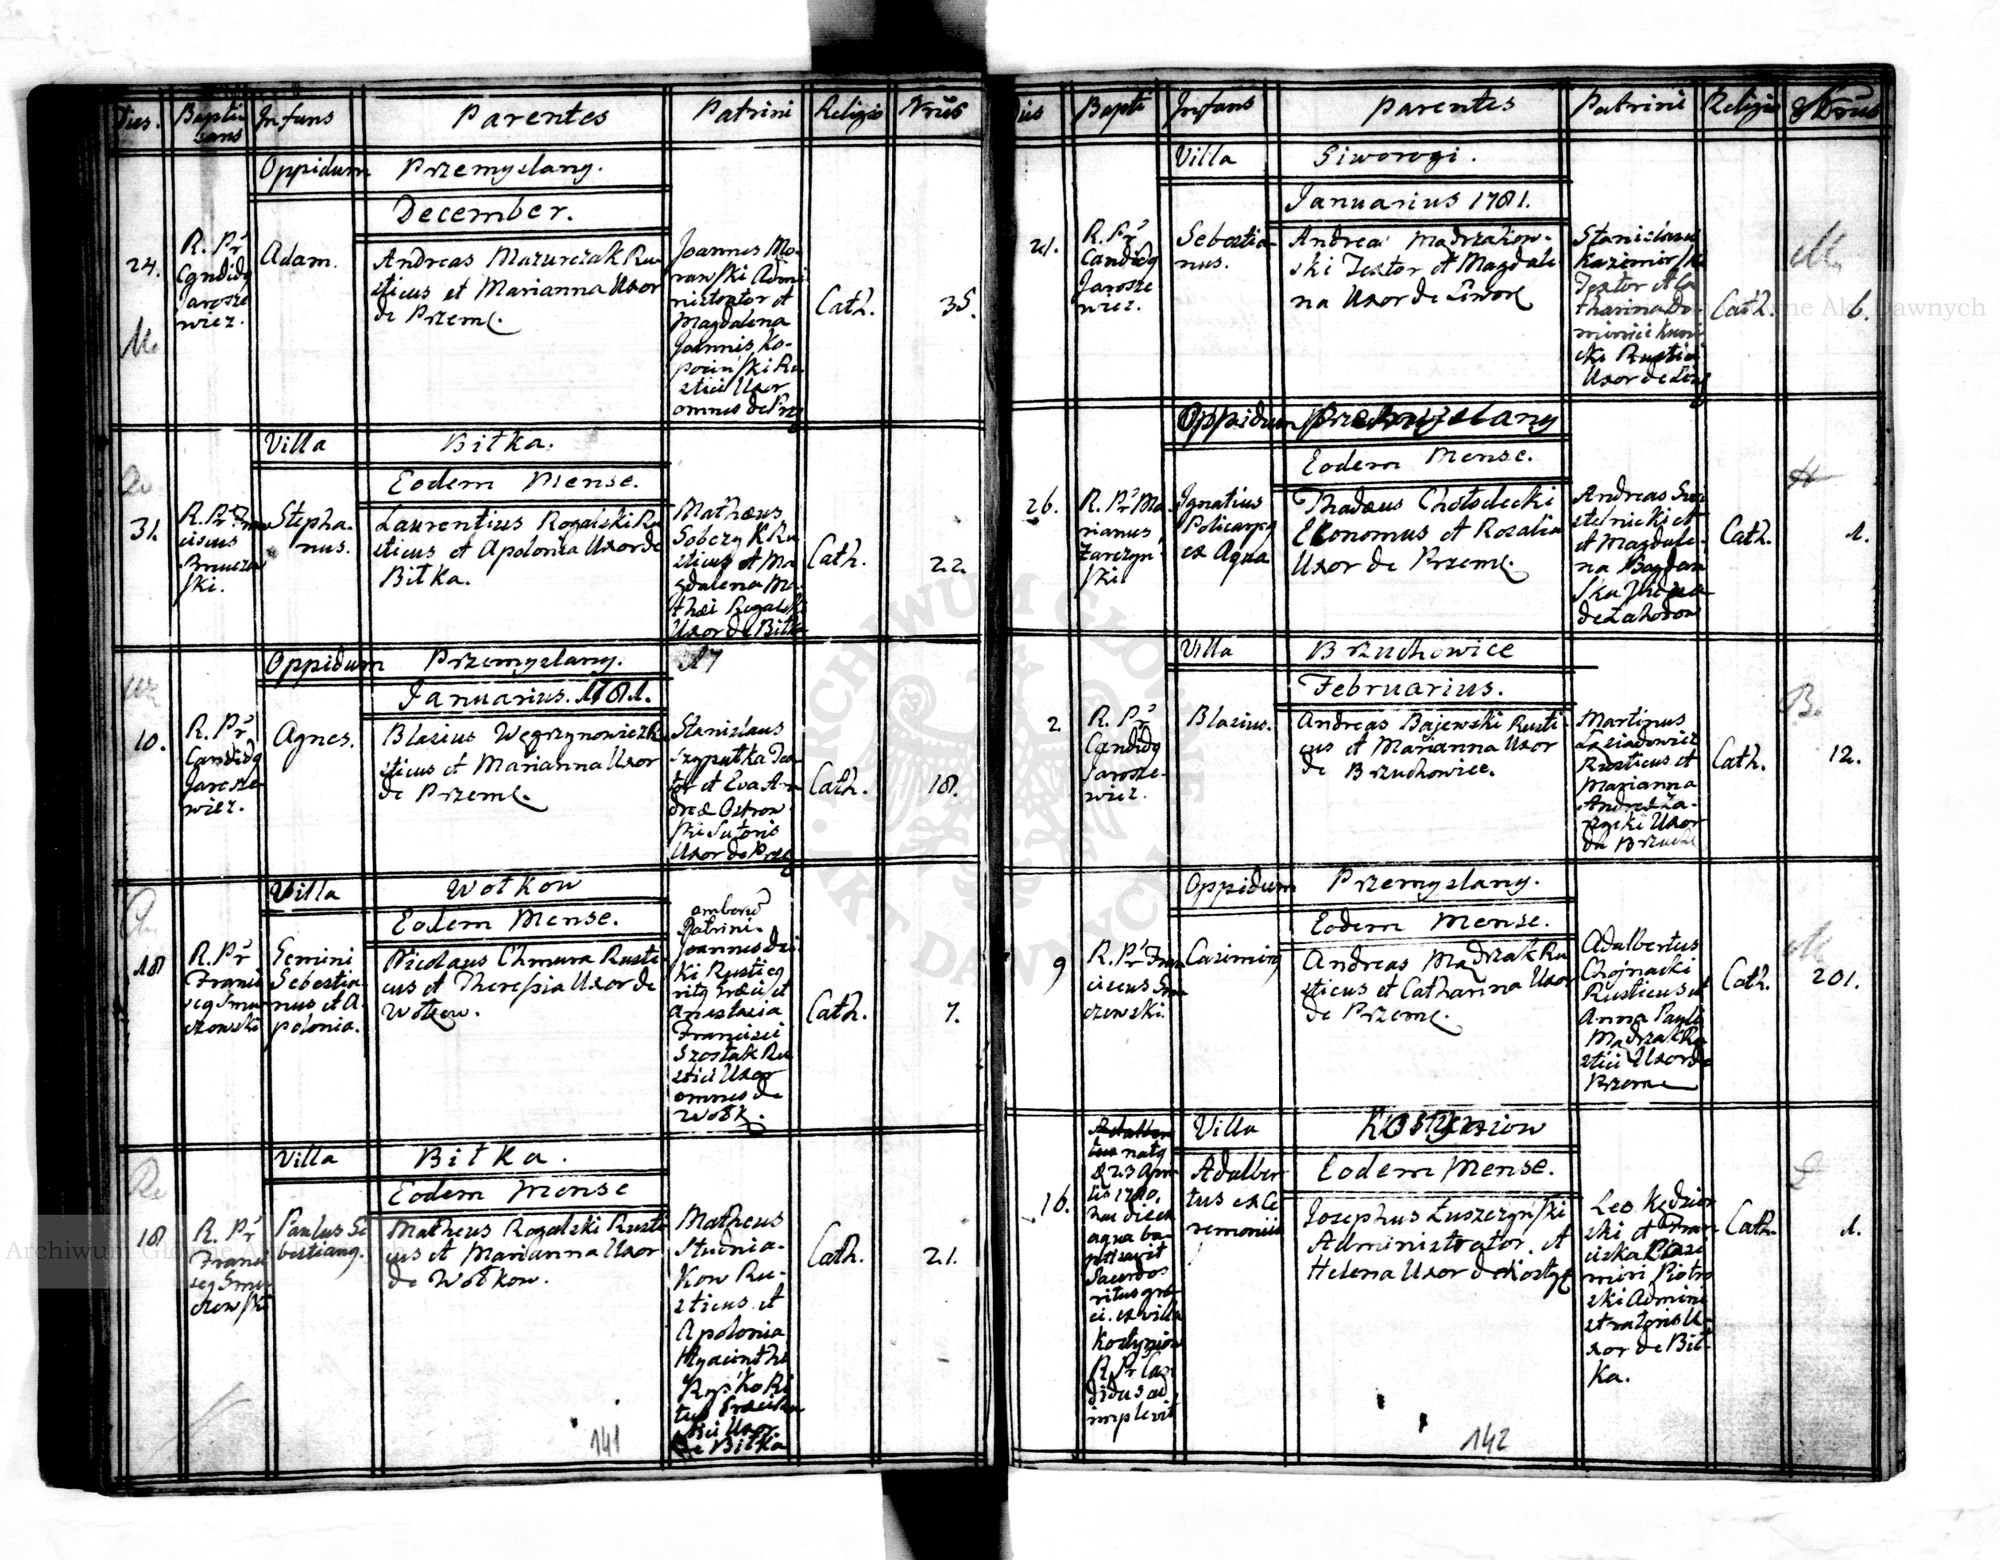 Dies. Baptizans Infans Parentes Patrini Religio Nrūs
Oppidum Przemyslany.
December.
24.
R. Pr
Candidq
Jarosze
wicz.
Adam.
Andreas Mazurczak Ru
sticus et Marianna Uxor
de Przem.
Joannes Mo-
ranski Admi
nistrator et
Magdalena
Joannis Ko-
pocinski Ru
stici Uxor
omnes de Prz
Cath.
35.
Villa Bitka.
Eodem Mense.
31.
R. Pr Fran
ciscus
ski.
Stepha-
nus.
Laurentius Rogalski Ru
sticus et Apolonia Uxor de
Bitka.
Mathæus
Sobczyk Ru
sticus et Ma
gdalena Ma-
thæi Rogalski
Uxor de Bitka
Cath.
22.
Oppidum Przemyslany.
Januarius. 1781.
10.
R. Pr
Candidq
Jarosze
wicz.
Agnes.
Blasius Węgrzynowicz Ru
sticus et Marianna Uxor
de Przem.
Stanislaus
Szypułka Tex
tor et Eva An
dreæ Ostrow
ski Sutoris
Uxor de Prze
Cath.
18.
Villa Wołkow
Eodem Mense.
18
R. Pr
Franci
scq Smu
czowski
Gemini
Sebestia
nus et A-
polonia.
Nicolaus Chmura Rusti
cus et Theressia Uxor de
Wołkow.
amborū
Patrini
Joannes Dzi
ki Rusticq
ritq Græci et
Anastasia
Francisci
Szostak Ru
stici Uxor
omnes de
Wołk.
Cath.
7.
Villa Bitka.
Eodem Mense
18
R. Pr
Franci
scq Smu
czowski
Paulus Se
bestianq.
Matheus Rogalski Rusti
cus et Marianna Uxor
de Wołkow.
Matheus
Studnia-
kow Ru-
sticus et
Apolonia
Hyacinthi
Ri
tus Græci Ru
stici Uxor
de Bitka
Cath.
21.
141
Dies Bapti Infans Parentes Patrini Religio Nrūs
Villa Siworogi.
Januarius 1781.
21.
R. Pr
Candidq
Jarosze
wicz.
Sebestia-
nus.
Andreas Madrzakow-
ski Textor et Magdale
na Uxor de Siwor
Stanislaus
Kazimirski
Textor et Ca
tharina Do-
minici Kuni
cki Rustici
Uxor de Siw
Cath.
6.
Oppidum Przemyslany
Eodem Mense.
26.
R. Pr Ma
rianus
Zarczyn
ski
Ignatius
Policarpq
ex Aqua
Thadæus Chołodecki
Economus et Rozalia
Uxor de Przem.
Andreas Swi
stelnicki et
et Magdale-
na Bogdan
ska
de Zahorow
Cath.
1.
Villa Brzuchowice
Februarius.
2.
R. Pr
Candidq
Jarosze-
wicz.
Blasius.
Andreas Bajewski Rusti
cus et Marianna Uxor
de Brzuchowice.
Martinus
Rusticus et
Marianna
Andreæ Za-
Uxor
de Brzuch
Cath.
12.
Oppidum Przemyslany.
Eodem Mense.
9
R. Pr Fran
ciscus Smu
czewski.
Casimirq
Andreas Mądrzak Ru
sticus et Catharina Uxor
de Przem.
Adalbertus
Chojnacki
Rusticus et
Anna Pauli
Mądrzak Ru
stici Uxor de
Przem
Cath.
201.
Villa Kostyniow
Eodem Mense.
16.
Adalber
tus natq
d 23 Apri
lis 1780.
hac die ex
aqua ba-
ptisavit
Sacerdos
ritus græ-
ci. ex villa
Kostyniow
R. Pr Can
didus ad
implevit
Adalber
tus ex Ce
remoniis
Josephus Łuszczyński
Administrator et
Helena Uxor de Kosty
Leo Kędzior
ski et Fran
ciszka Kazi
miri Piotro
wski Admini
stratoris U-
xor de Bit-
ka.
Cath.
1.
142
Archiwum Główne Akt Dawnych
ARCHIWUM GŁÓWNE AKT DAWNYCH